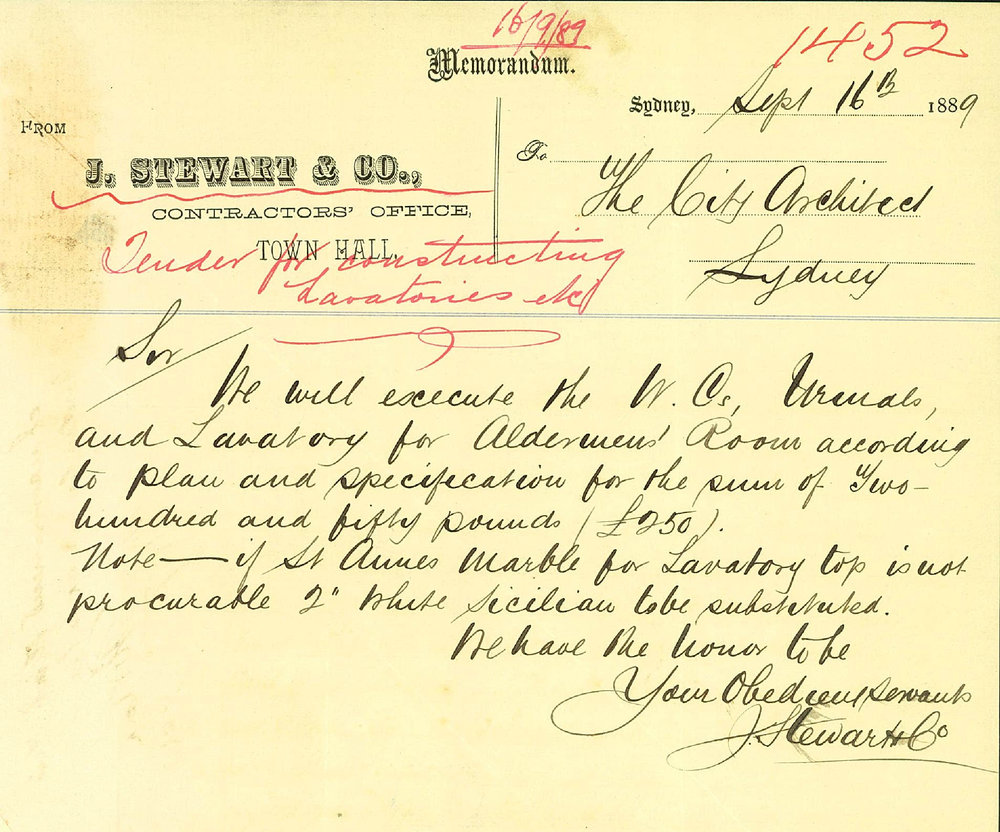 16/9/89
1452
Memorandum.
Sydney, Sept 16th 1889
FROM
J. STEWART & CO.,
CONTRACTORS' OFFICE,
TOWN HALL.
To
The City Architect
Sydney
Tender for constructing
Lavatories etc
Sir
We will execute the W. Cs, Urinals,
and Lavatory for Aldermens' Room according
to plan and specification for the sum of Two-
hundred and fifty pounds (£250).
Note — if St Annes Marble for Lavatory top is not
procurable 2" White Sicilian to be substituted.
We have the honor to be
Your Obedient Servants
J. Stewart & Co